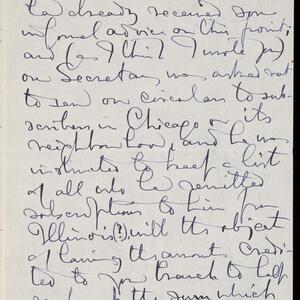 had already received some
informal advice on this point;
and (as I think I wrote you)
our Secretary was asked not
to send our circulars to sub-
scribers in Chicago or its
neighborhood, and he was
instructed to keep a list
of all who had remitted
subscriptions to him from
Illinois (?), with the object
of having the amounts credi-
ted to your branch to help
the sum which